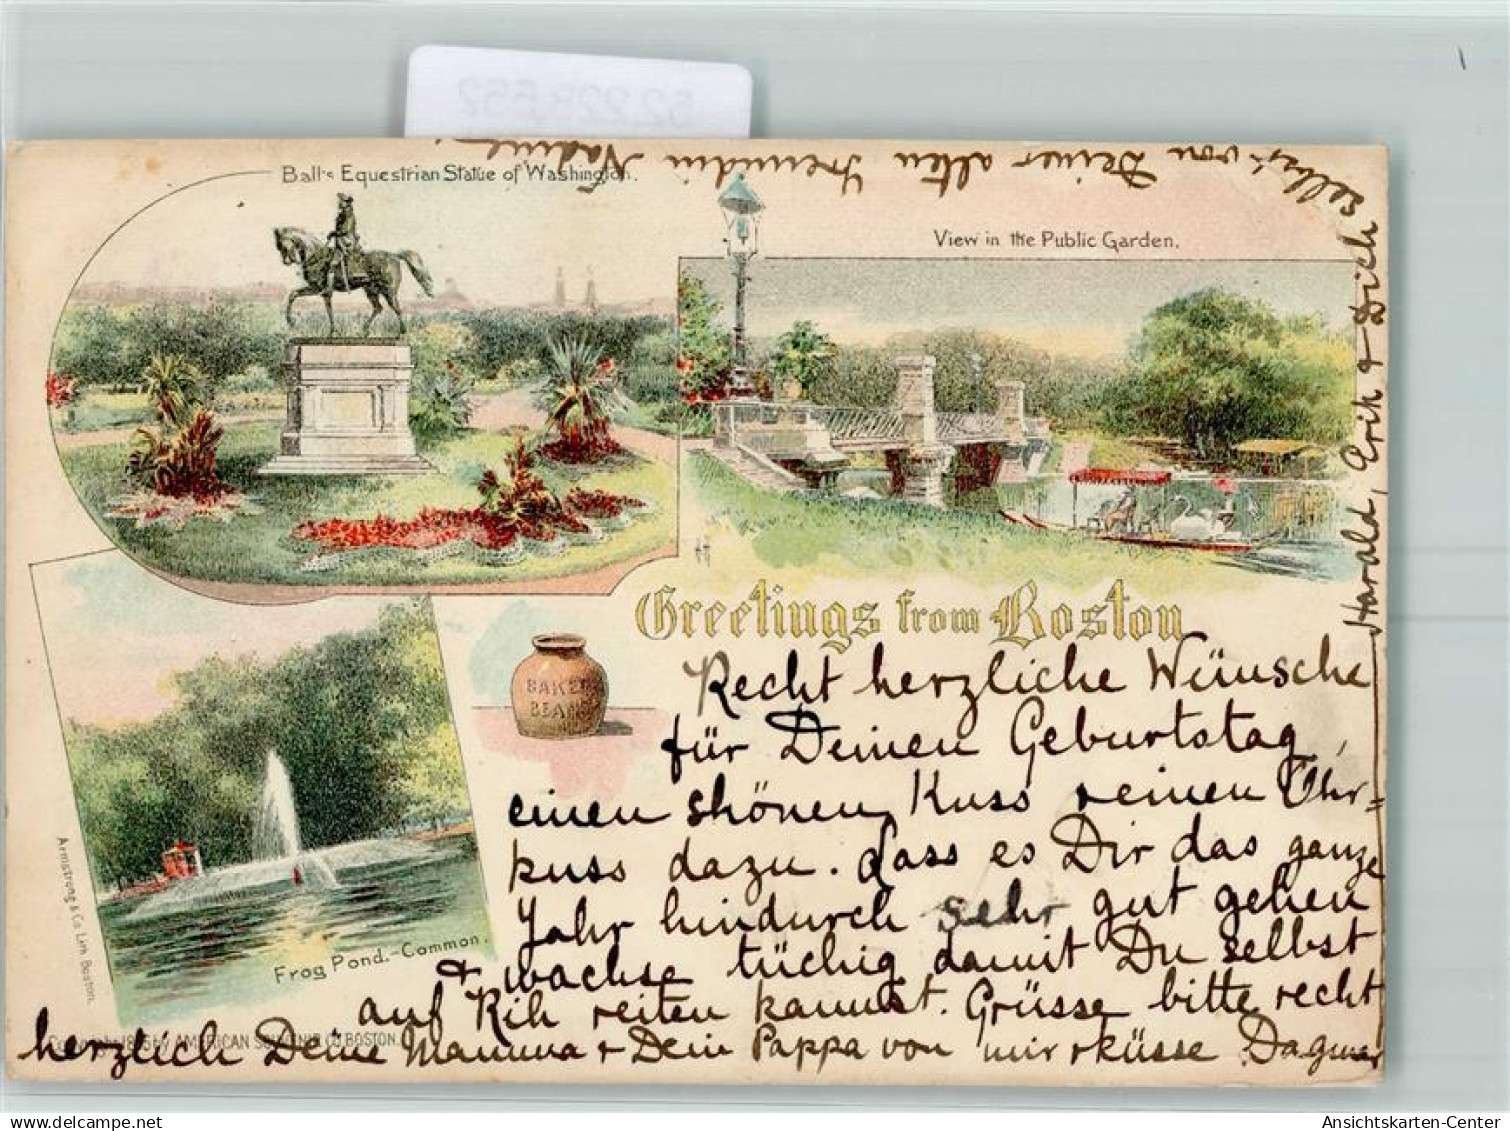 52.228.552
Ball's Equestrian Statue of Washington.
View in the Public Garden.
Greetings from Boston
BAKED
BEANS
Frog Pond.-Common.
Armstrong & Co. Lith. Boston.
AMERICAN SOUVENIR CO. BOSTON.
Recht herzliche Wünsche
für Deinen Geburtstag,
einen shönen Kuss & einen Ohr=
kuss dazu. Lass es Dir das ganze
Jahr hindurch sehr gut gehen
& wachse tüchig damit Du selbst
auf Kih reiten kannst. Grüsse bitte recht
herzlich Deine Mamma & Dein Pappa von mir & küsse Dagmar
Harald, Erik & Dich
selbst von Deiner alten Freundin Nadine
Ansichtskarten-Center